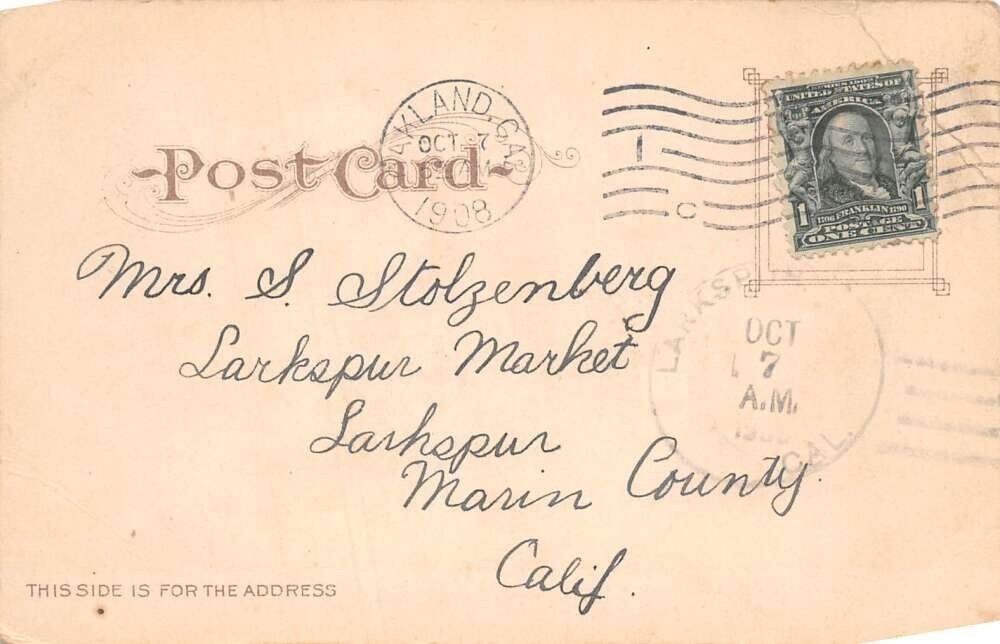 Post Card
OAKLAND, CAL.
OCT 7
1908
C
SERIES 1902
UNITED STATES OF
AMERICA
1 1706 FRANKLIN 1790 1
POSTAGE
ONE CENT
Mrs. S. Stolzenberg
Larkspur Market
Larkspur
Marin County.
Calif.
LARKSP
OCT
7
A.M.
CAL.
THIS SIDE IS FOR THE ADDRESS